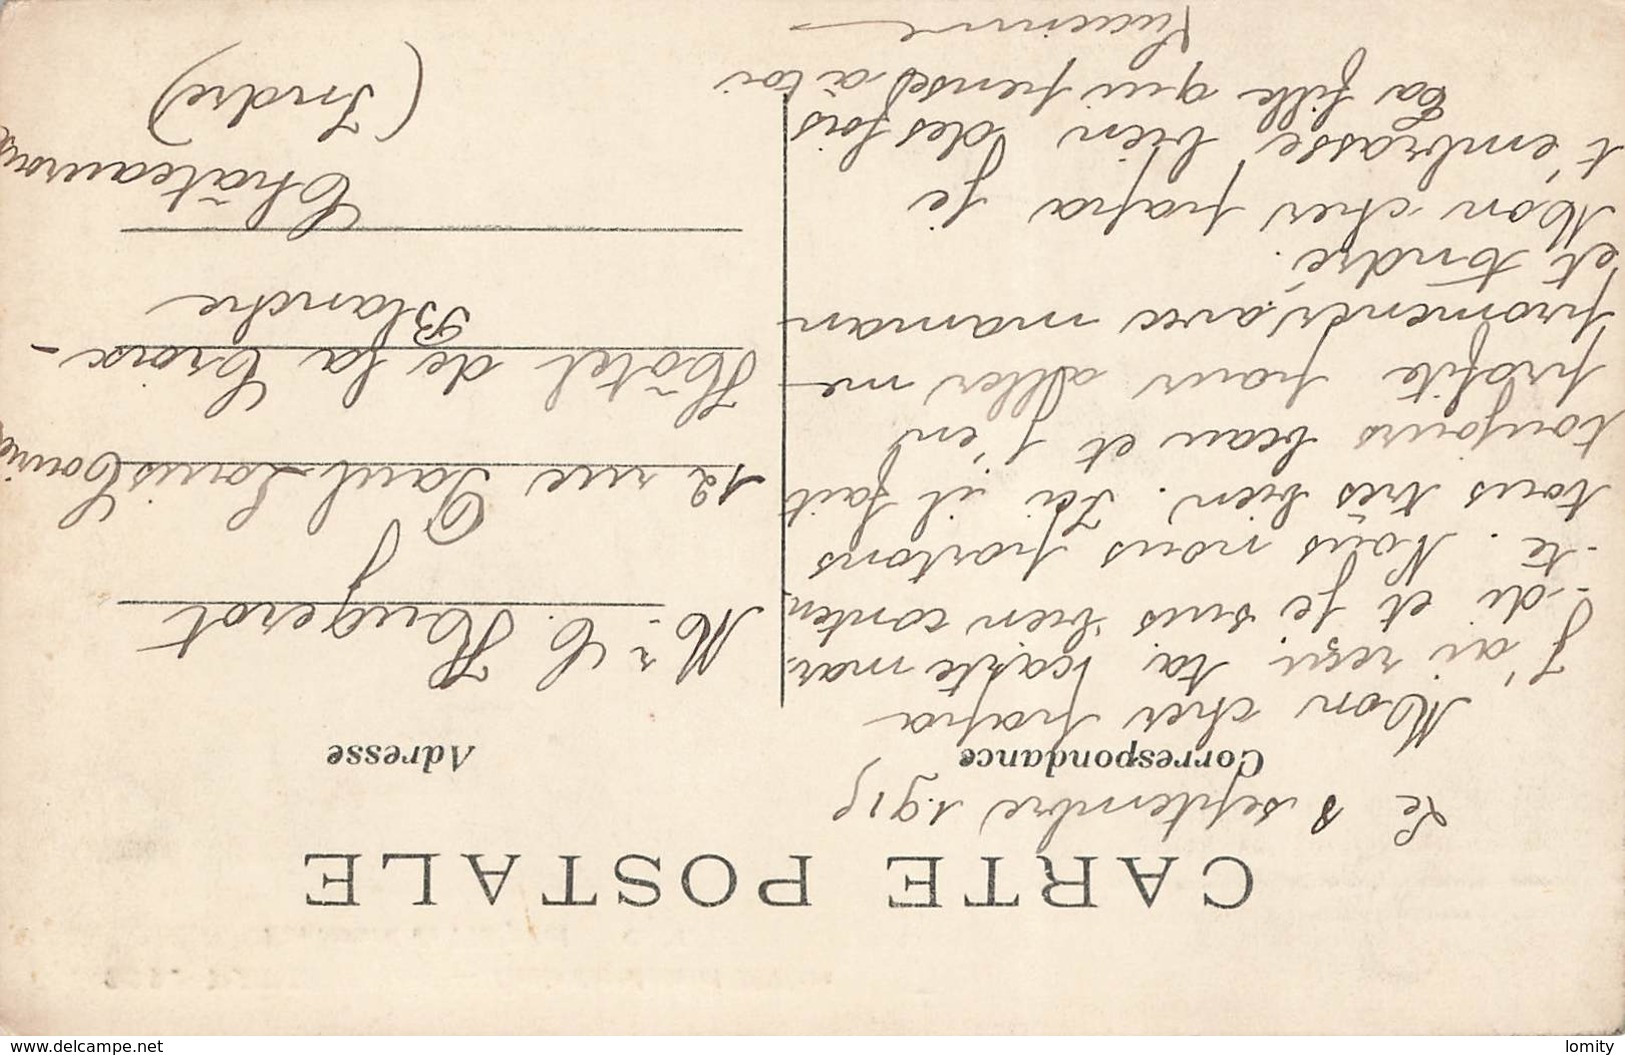 CARTE POSTALE
Le 8 septembre 1915
Correspondance
Mon cher papa
J'ai reçu ta carte mar-
-di et je suis bien conten
-te. Nous nous portons
tous très bien. Ici il fait
toujours beau et j'en
profite pour aller me
promener avec maman
et André.
Mon cher papa je
t'embrasse bien des fois
Ta fille qui pense à toi
Lucienne
Adresse
Mr C. Hugerot
12 rue Paul-Louis Courier
Hôtel de la Croix-
Blanche
Châteauroux
(Indre)
www.delcampe.net
lomity